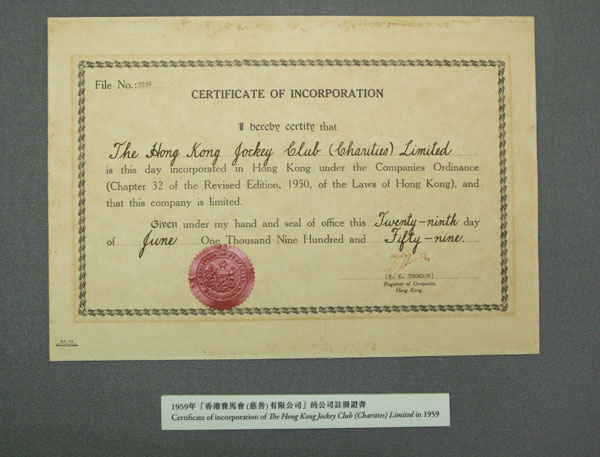 File No.: 5554
CERTIFICATE OF INCORPORATION
I hereby certify that
The Hong Kong Jockey Club (Charities) Limited
is this day incorporated in Hong Kong under the Companies Ordinance
(Chapter 32 of the Revised Edition, 1950, of the Laws of Hong Kong), and
that this company is limited.
Given under my hand and seal of office this Twenty-ninth day
of June One Thousand Nine Hundred and Fifty-nine.
THOMSON)
Registrar of Companies,
Hong Kong.
1959年「香港賽馬會(慈善)有限公司」的公司註冊證書
Certificate of incorporation of The Hong Kong Jockey Club (Charities) Limited in 1959